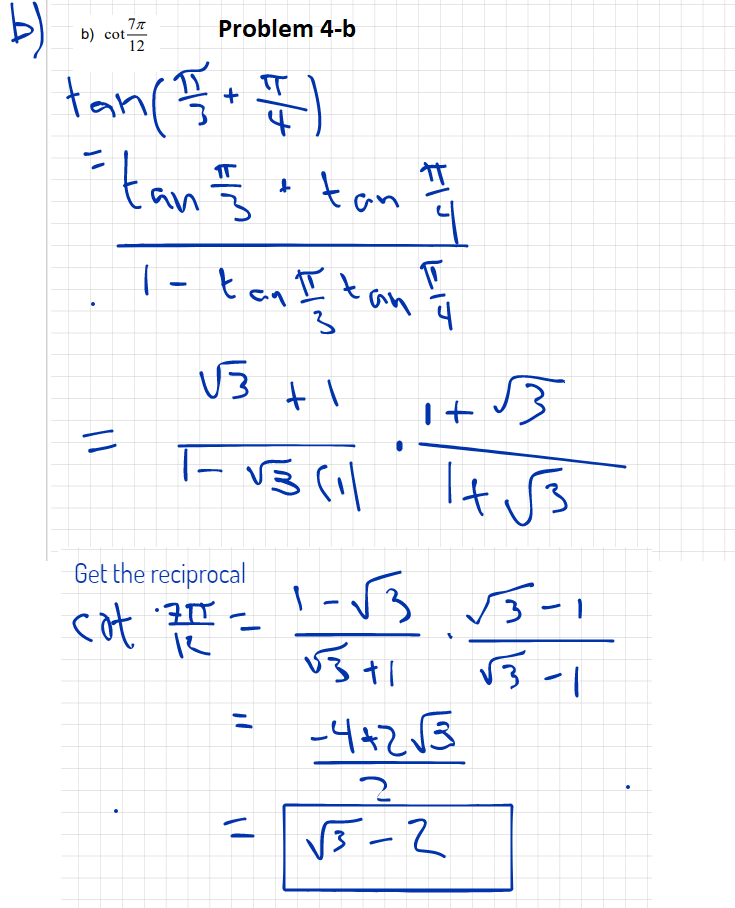 b) b) cot 7π/12 Problem 4-b
tan(π/3 + π/4)
= (tan π/3 + tan π/4) / (1 - tan π/3 tan π/4)
= (√3 + 1) / (1 - √3 (1)) · (1 + √3) / (1 + √3)
Get the reciprocal
cot 7π/12 = (1 - √3) / (√3 + 1) · (√3 - 1) / (√3 - 1)
= (-4+2√3) / 2
= √3 - 2